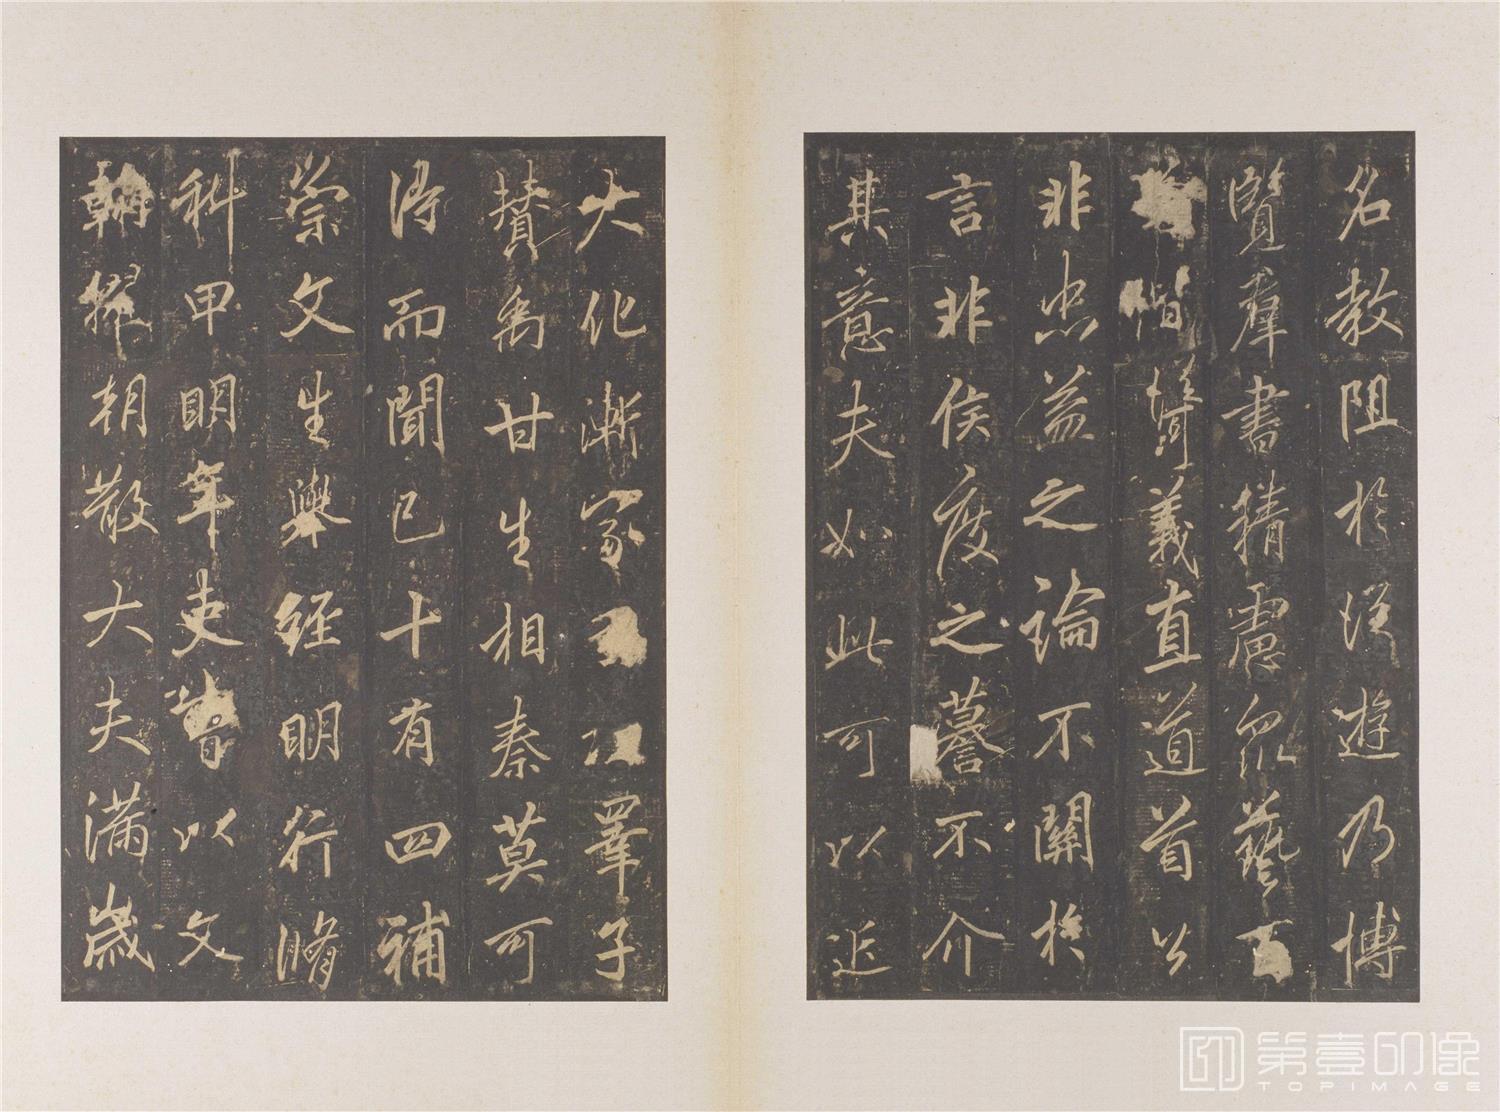 名教阻於從遊乃博
覽羣書精慮眾藝百
行偕脩義直道首公
非忠益之論不關於
言非侯度之謩不介
其意夫如此可以近
大化漸家子江睪子
賛禹甘生相秦莫可
得而聞已十有四補
崇文生舉經明行脩
科甲明年吏部以文
翰擢朝散大夫滿歲
第壹印像
TOPIMAGE